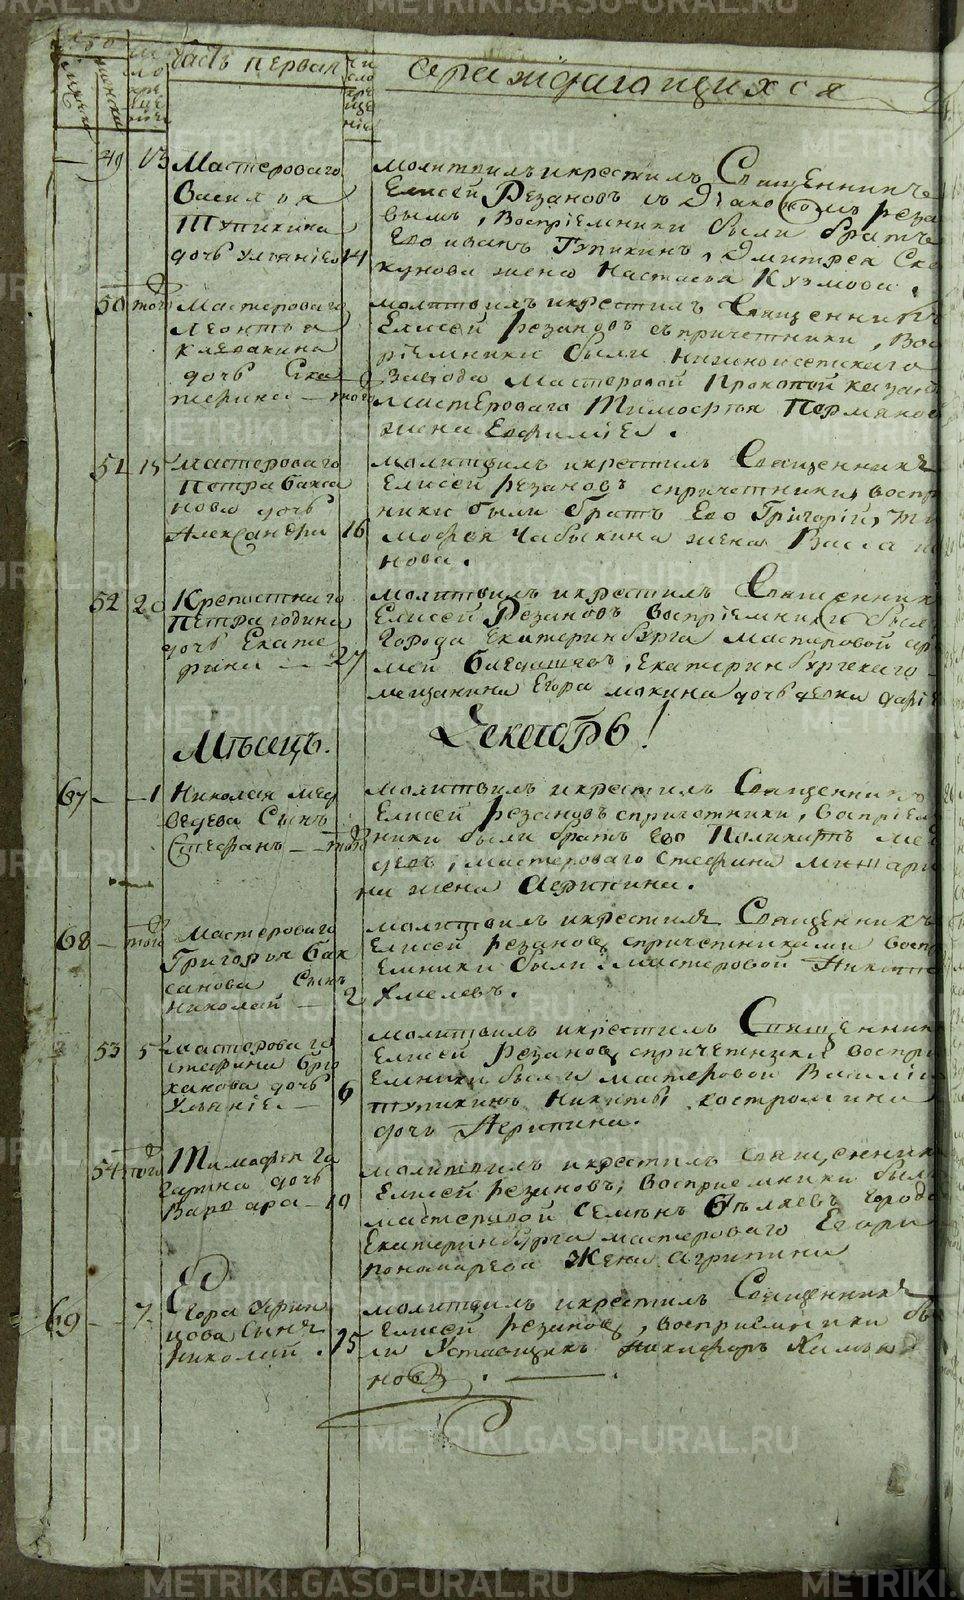 Часть первая
о раждающихся
49 13 Мастероваго
Василья
Тупикина
дочь Ульянiя 14
молитвилъ и крестилъ Священникъ
Елисей Резановъ
вымъ, Воспрiемники были братъ
Его иванъ Тупикинъ, Дмитрея
жена Настасья Кузмова.
50 того Мастероваго
Леонтья
Клевакина
дочь Ека
терина — того
молитвилъ и крестилъ Священникъ
Елисей Резановъ съ причетники, Вос
прiемники были Нижноисецкаго
Завода Мастеровой Прокопей
Мастероваго Тимофея
жена Евфимiя.
51 15 Мастероваго
Петра Бакса
нова дочь
Александра 16
молитвилъ и крестилъ Священникъ
Елисей Резановъ с причетники, воспр
ники были братъ Его Григорiй, Ти
мофея Чабыкина жена Васса
нова.
52 20 Крепостнаго
Петра година
дочь Екате
рина — 27
молитвилъ и крестилъ Священник
Елисей Резановъ Воспрiемники были
города Екатеринбурга мастеровой
Екатеринбургскаго
мещанина Егора мокина дочь девка
Мѣсецъ. Декабрь!
67 — 1 Николая Мед
ведева Сынъ
Стефанъ — того
молитвилъ и крестилъ Священникъ
Елисей Резановъ с причетники, воспрiем
ники были братъ его Поликарпъ ме
девъ, мастероваго Стефана
на жена Агрипина.
68 — того Мастероваго
Григорья Бак
санова Сынъ
Николай — 2
молитвилъ и крестилъ Священникъ
Елисей Резановъ с причетниками Воспр
емники были: мастеровой Никита
Хмелевъ.
53 5 Мастероваго
стефана бро
ханова дочь
Ульянiя — 6
молитвилъ и крестилъ Священник
Елисей Резановъ с причетники воспрi
емники были мастеровой Василiй
тупикинъ Никиты костромина
дочь Агрипина.
54 того Тимофея Га
гарина дочь
Варвара — 10
молитвилъ и крестилъ священник
Елисей Резановъ; Восприемники были
мастеровой Семенъ Беляевъ города
Екатеринбурга мастероваго Егора
пономарева Жена агрипина
69 — 7 Егора
цова Сынъ
Николай. 15
молитвилъ и крестилъ Священникъ
Елисей Резановъ, восприемники бы
ли Уставщикъ Никифоръ
новъ.
METRIKI.GASO-URAL.RU